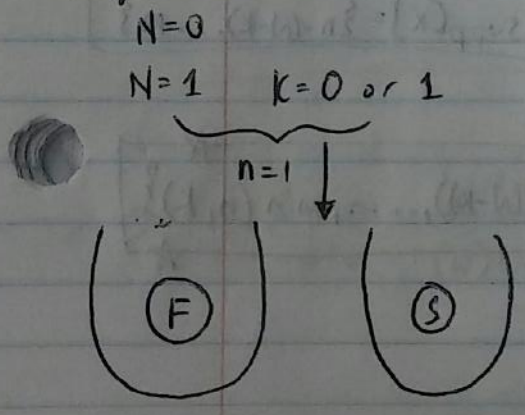 N=0
N=1 K=0 or 1
n=1
F S